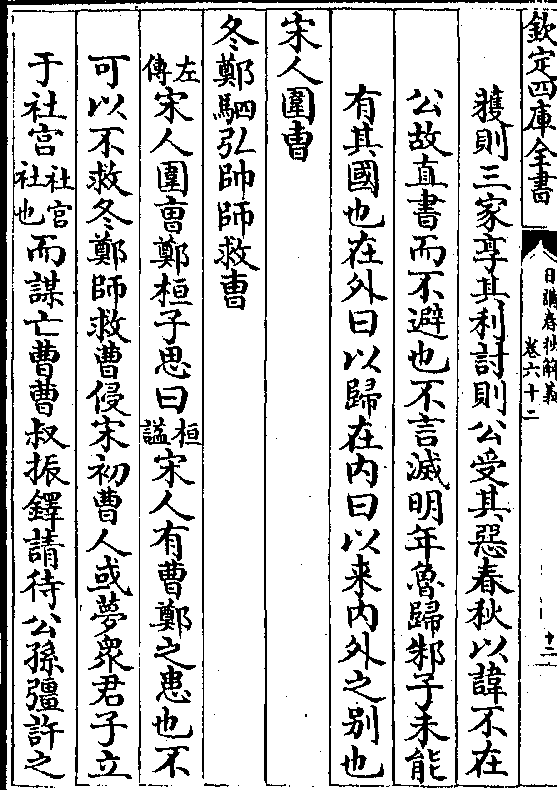 欽定四庫全書
日講春秋解義
卷六十二
十二
獲則三家享其利討則公受其惡春秋以諱不在
公故直書而不避也不言滅明年魯歸邾子未能
有其國也在外曰以歸在内曰以来内外之别也
宋人圍曹
冬鄭駟弘帥師救曹
左傳宋人圍曹鄭桓子思曰桓諡宋人有曹鄭之患也不
可以不救冬鄭師救曹侵宋初曹人或夢衆君子立
于社宫社宫社也而謀亡曹曹叔振鐸請待公孫彊許之